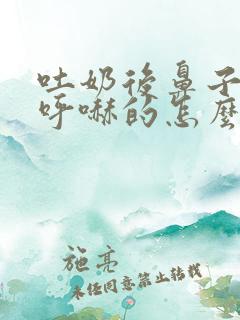 吐奶後鼻子
呼嚇的怎麼
施亮
未经同意禁止转载